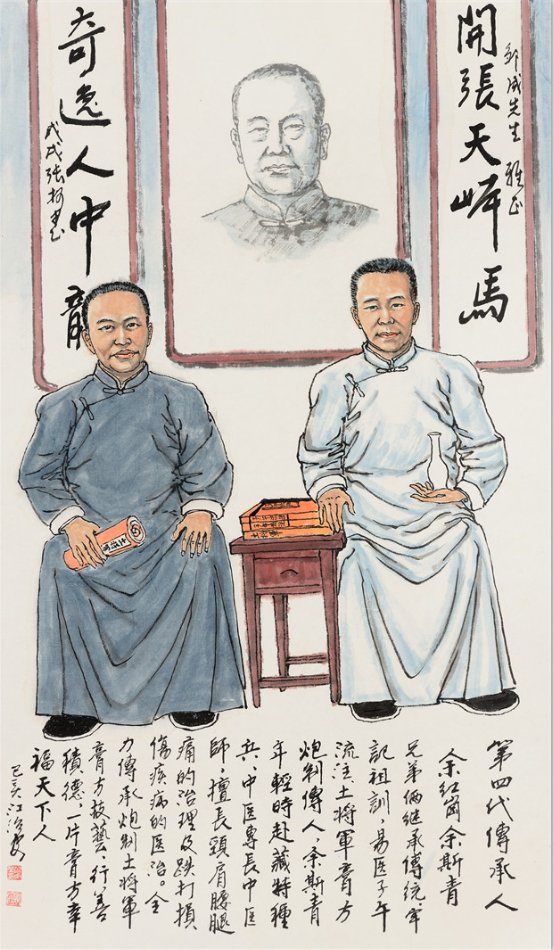 開張天岸馬
成先生 雅正
奇逸人中龍
戊戌張
第四代傳承人
余紅崗余斯青
兄弟倆继承傳統牢
記祖訓,易医子午
流注土將軍膏方
炮制傳人,余斯青
年輕時赴藏特種
兵、中医專長中医
師,擅長頸肩腰腿
痛的治理及跌打損
傷疾病的医治。全
力傳承炮制土將軍
膏方技藝、行善
積德、一片膏方幸
福天下人
己亥江